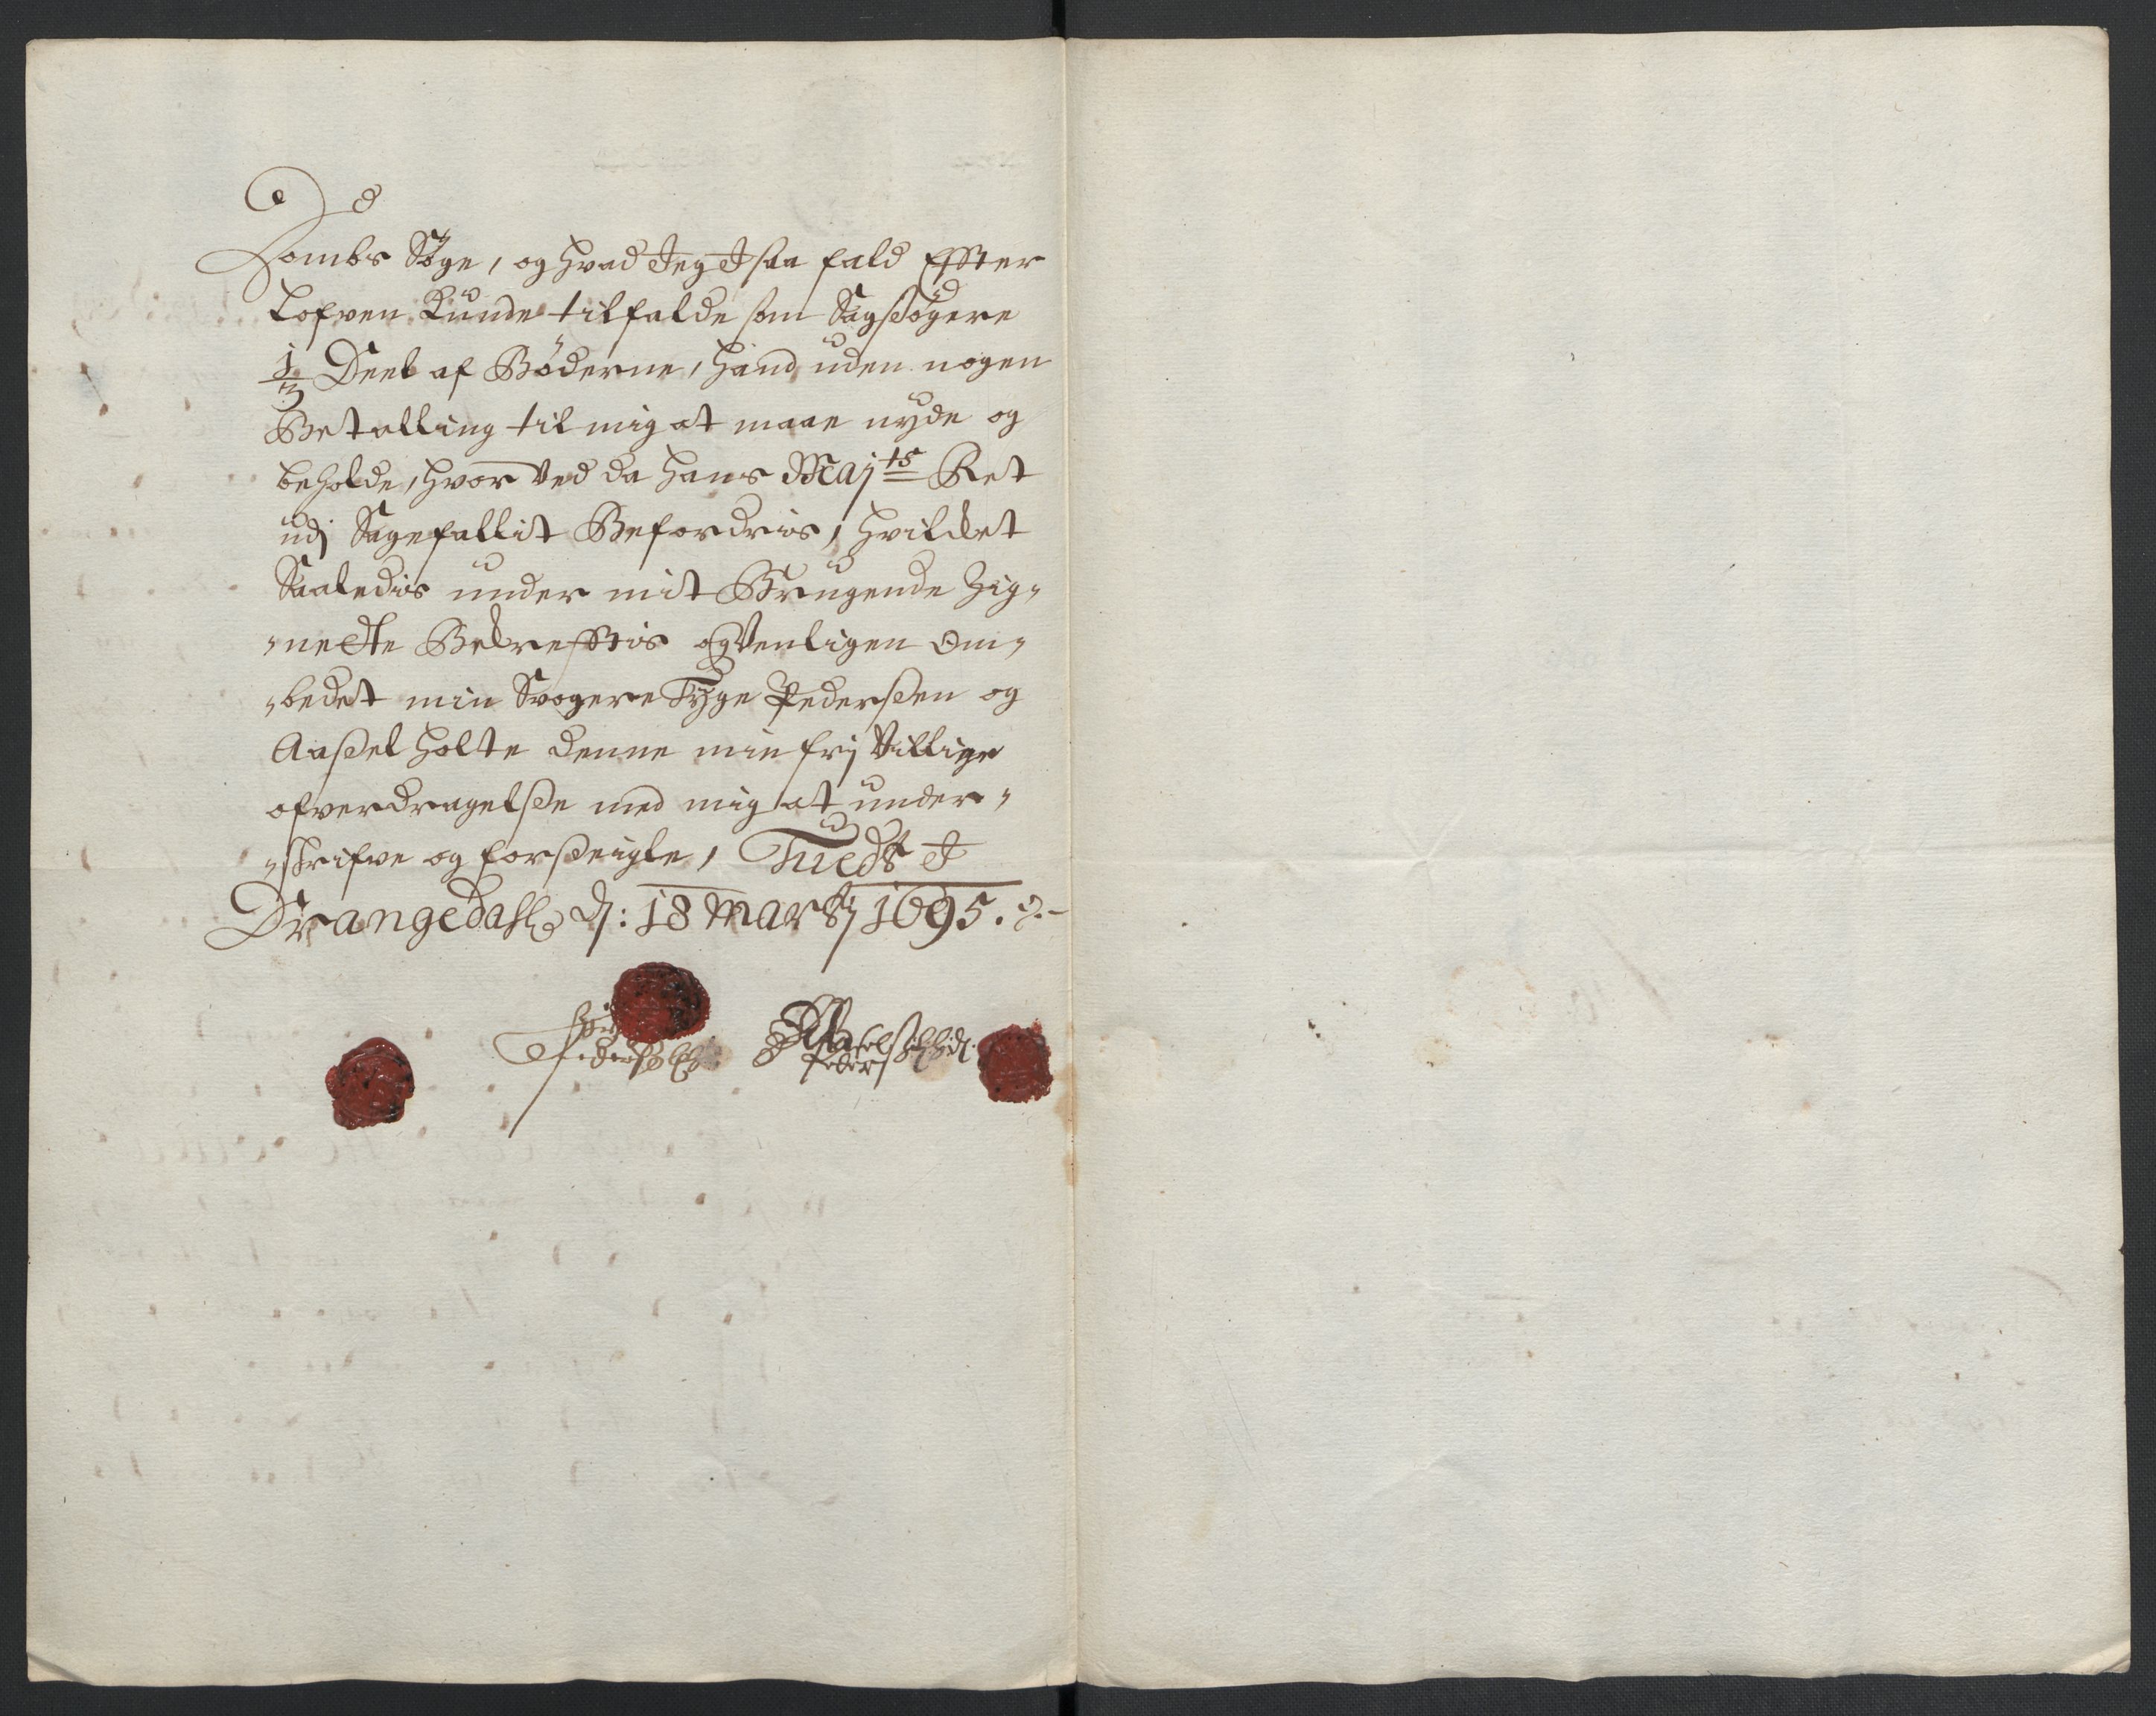 Dombs Søge, og hvad Jeg J saa fald Effter
Lofven kunde tilfalde som Sagsøgere
1/3 Deel af Bøderne, hand uden nogen
Betalling til mig at maae nyde og
beholde, hvor ved da hans Maj^ts Ret
udj Sagefallit Befordris, hvilcket
Saaledis under mit Brugende Zig„
„nette Bekrefftis og Venligen Om„
„bedet min Svogere Tyge Pederßen og
Aaßel Holte denne min frj Villige
ofverdragelße med mig at under„
„skrifve og forßeigle, Tuedt J
Drangedahl d: 18 Martij 1695.
Pederßøn
Peders